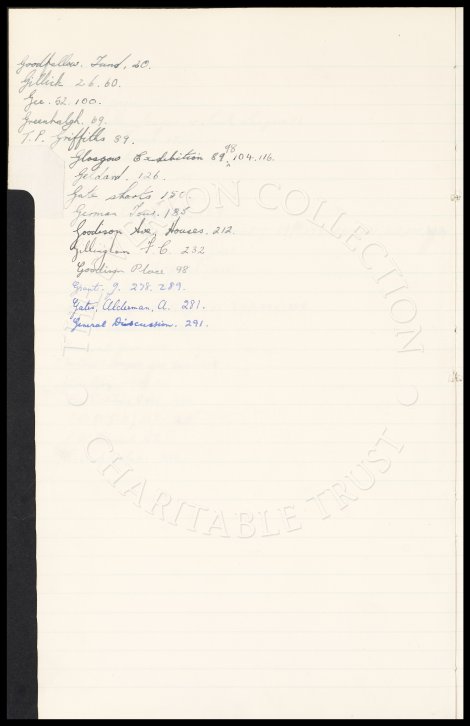 Goodfellow. Fund. 20.
Gillick 26. 60.
Gee. 52. 100.
Greenhalgh. 69.
T.P. Griffiths 89.
Glasgow Exhibition 89, 98, 104. 116.
Geldard. 126.
Gate shorts 150.
German Tour. 185
Goodison Ave, Houses. 212.
Gillingham F.C. 232
Goodison Place 98
Grant. J. 278. 289.
Gates, Alderman, A. 281.
General Discussion. 291.
COLLECTION
CHARITABLE TRUST